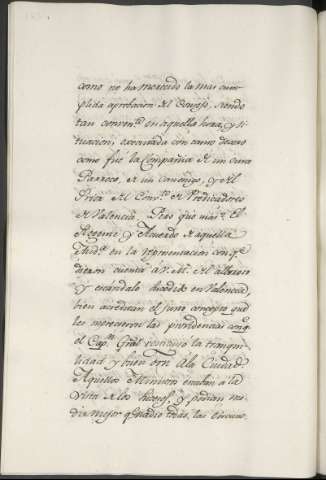 como no ha merecido la mas cum-
plida aprobacion del Consejo, siendo
tan conven.te en aquella hora, y si-
tuacion, executada con tanto decoro
como fué la Compañia de un Cura
Parroco, de un Canonigo, y del
Prior del Conv.to de Predicadores
de Valencia. Pero que mas? El
Regente y Acuerdo de aquella
Aud.a en la representacion con q.e
dieron cuenta a V. M. del alboroto
y escándalo sucedido en Valencia,
bien acreditan el sumo concepto que
les merecieron las providencias con q.e
el Cap.n Gral restituyó la tranqui-
lidad y buen orn. a la Ciudad.
Aquellos Ministros estaban a la
vista de los hechos, y podian me-
dir mejor q.e nadie todas las circuns-